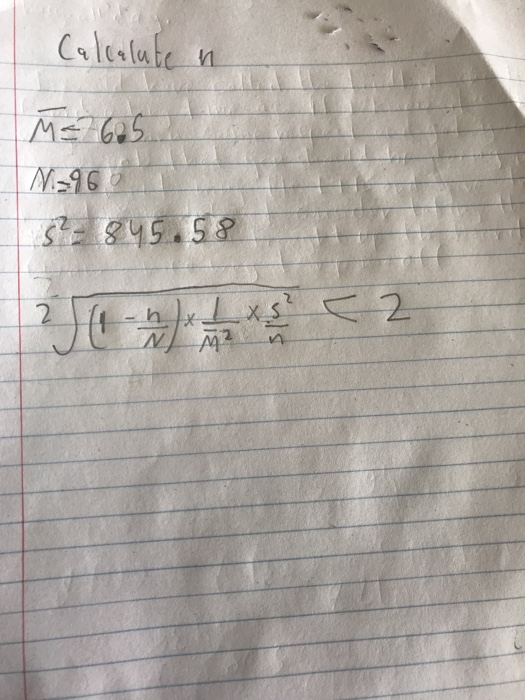 Calcalute n
M̅ = 6.5
N = 96
s² = 845.58
2√((1 - n/N) × 1/M̅² × s²/n) < 2